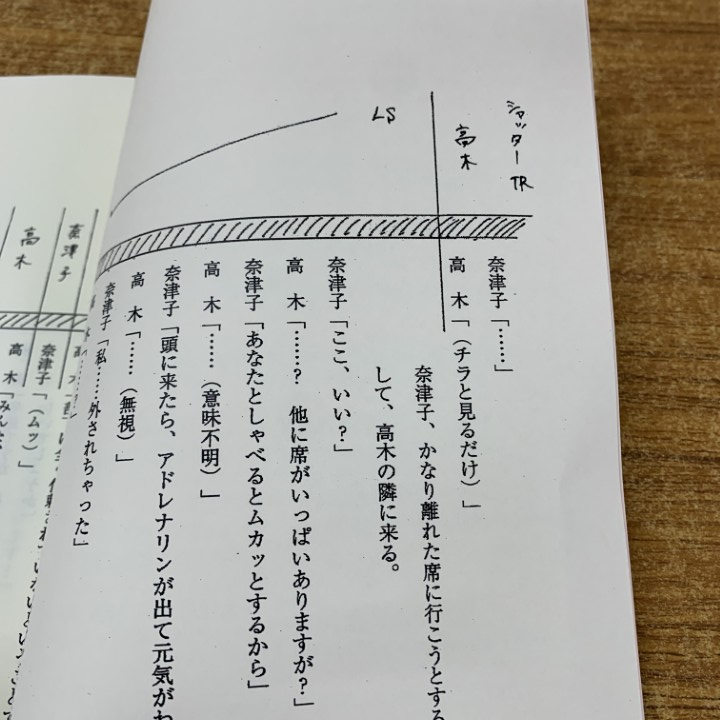 シャッター TR
高木
LS
奈津子「……」
高 木「(チラと見るだけ)」
奈津子、かなり離れた席に行こうとする
して、高木の隣に来る。
奈津子「ここ、いい?」
高 木「……? 他に席がいっぱいありますが?」
奈津子「あなたとしゃべるとムカッとするから」
高 木「……(意味不明)」
奈津子「頭に来たら、アドレナリンが出て元気が
高 木「……(無視)」
奈津子「私……外されちゃった」
奈津子
高木
高
奈津子「(ムッ)」
高 木